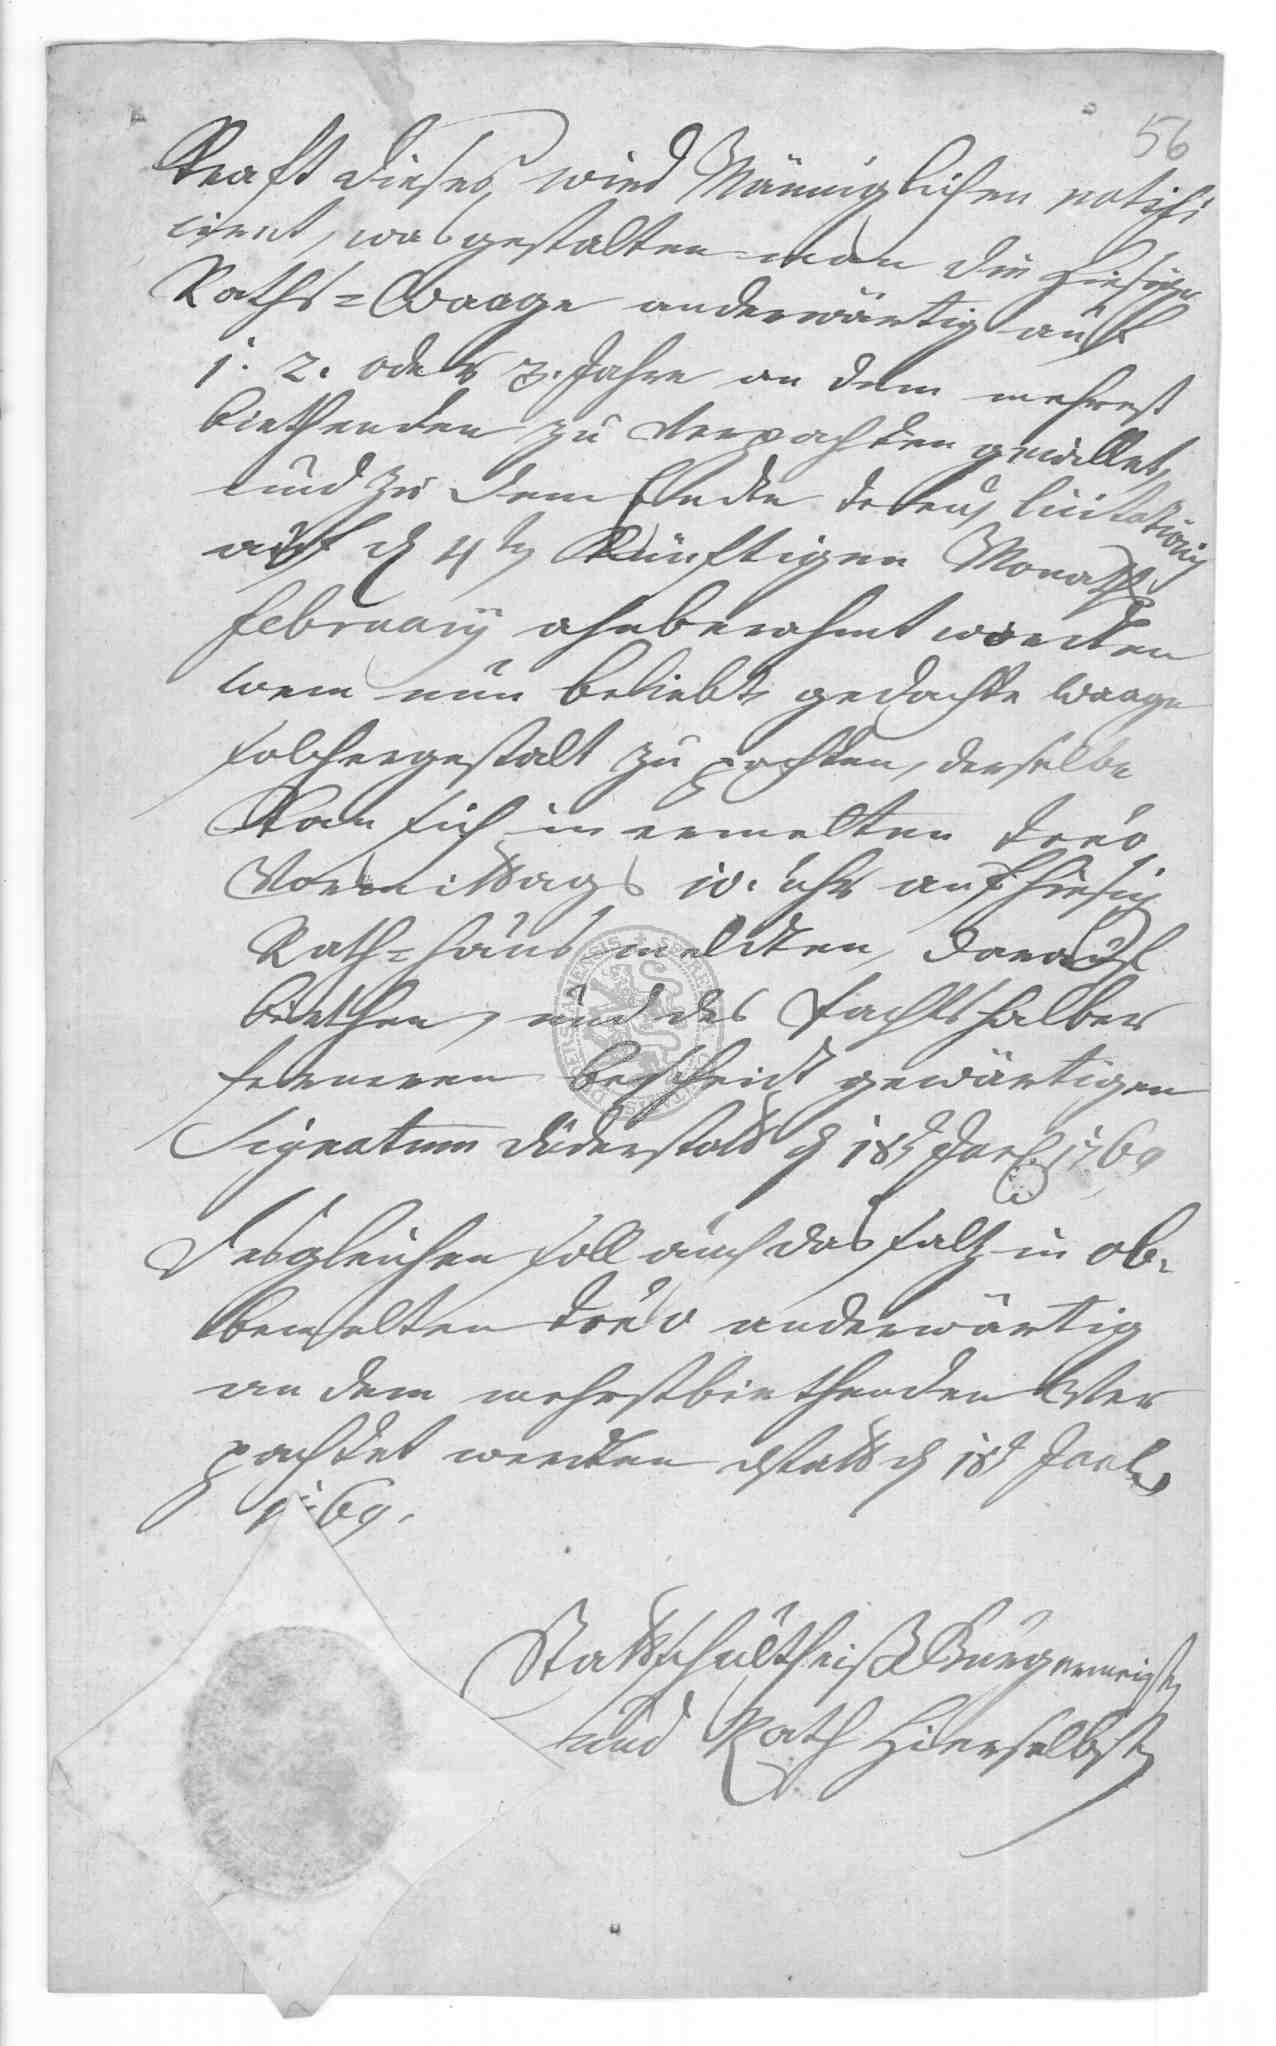 56
Kraft dieses wird Männiglichen notifi
cirent, was gestalten man die hiesige
Raths=Waage anderwärtig auf
1. 2. oder 3. Jahre an dem mehrest
biethenden zu verpachten gewillet,
und zu dem Endte licitationis
auf d 4t Künftigen Monaths
february ahnberahmt worden
wem nun beliebt gedachte Waage
solchergestalt zu pachten, derselbe
Kan sich in ermelten
Vormittags 10. uhr auf hiesig
Rath=haus meldten, darauf
biethen, und des Pachts halber
ferneren bescheidt gewärtigen
Signatum Duderstadt d 18t Jan 1769
Desgleichen soll auch das Saltz in ob=
bemelten anderwärtig
an dem mehrstbiethenden Ver
pachtet werden dstadt d 18t
1769.
Stattschultheiß Burgermeister
und Rath hierselbst